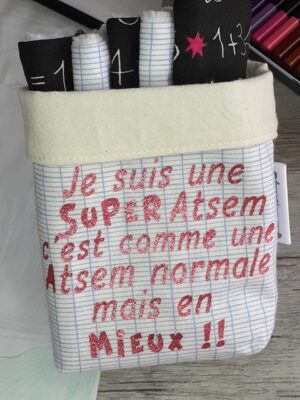 = 1 + 1+3
Je suis une
SUPER Atsem
c'est comme une
Atsem normale
mais en
MIEUX !!